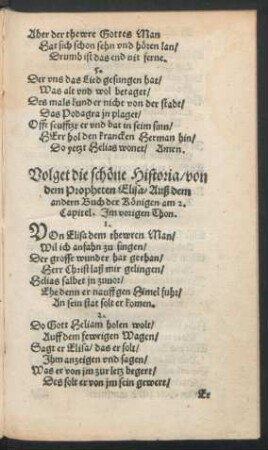 Aber der thewre Gottes Man
Hat sich schon sehn vnd hören lan/
Drumb ist das end nit ferne.
5.
Der vns das Lied gesungen hat/
Was alt vnd wol betaget/
Des mals kunder nicht von der stadt/
Das Podagra jn plaget/
Offt seufftzt er vnd bat in seim sinn/
HErr hol den krancken Herman hin/
Do yetzt Helias wonet/ Amen.
Volget die schöne Historia/ von
dem Propheten Elisa/ Auß dem
andern Buch der Königen am 2.
Capitel. Im vorigen Thon.
1.
VOn Elisa dem thewren Man/
Wil ich anfahn zu singen/
Der grosse wunder hat gethan/
Herr Christ laß mir gelingen/
Helias salbet jn zuuor/
Ehe denn er nauff gen Himel fuhr/
An sein stat solt er komen.
2.
Do Gott Heliam holen wolt/
Auff dem fewrigen Wagen/
Sagt er Elisa/ das er solt/
Ihm anzeigen vnd sagen/
Was er von jm zur letz begert/
Des solt er von jm sein gewert/
Er